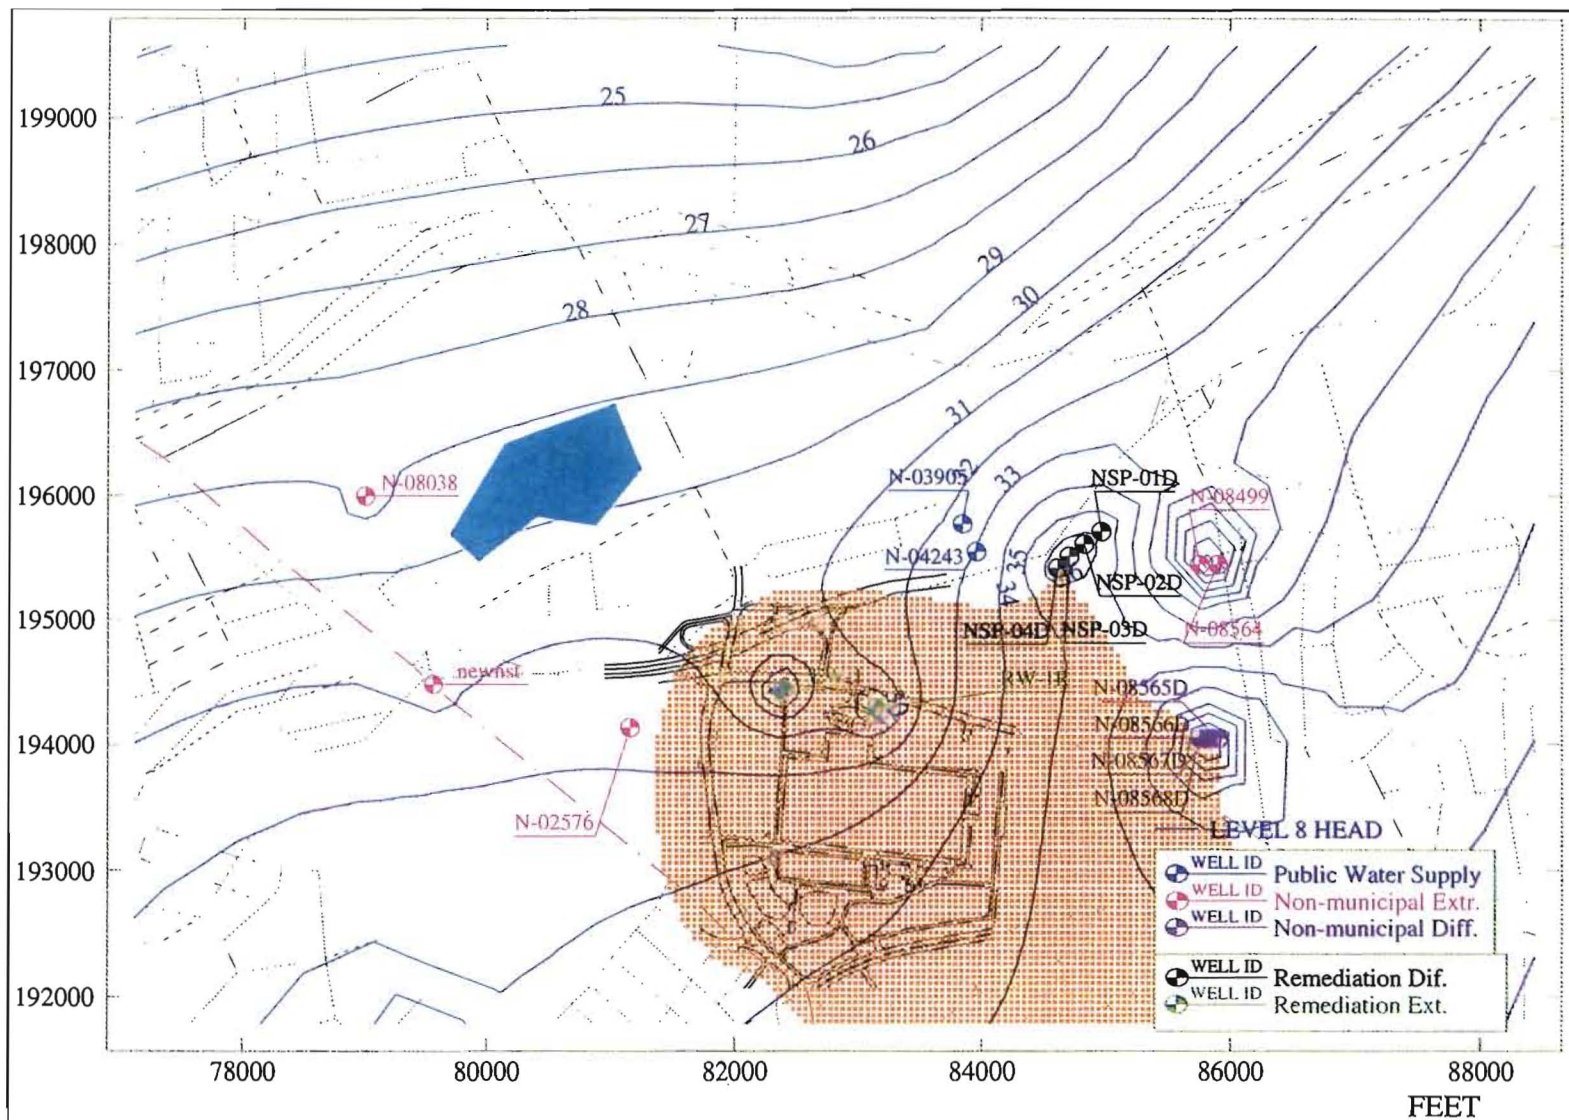 199000
198000
197000
196000
195000
194000
193000
192000
25
26
27
28
29
30
31
32
33
34
35
N-08038
N-03905
NSP-01D
N-08499
N-04243
NSP-02D
NSP-04D
NSP-03D
N-08564
newnsf
N-08565D
N-08566D
N-08567D
N-08568D
N-02576
LEVEL 8 HEAD
WELL ID Public Water Supply
WELL ID Non-municipal Extr.
WELL ID Non-municipal Diff.
WELL ID Remediation Dif.
WELL ID Remediation Ext.
78000
80000
82000
84000
86000
88000
FEET